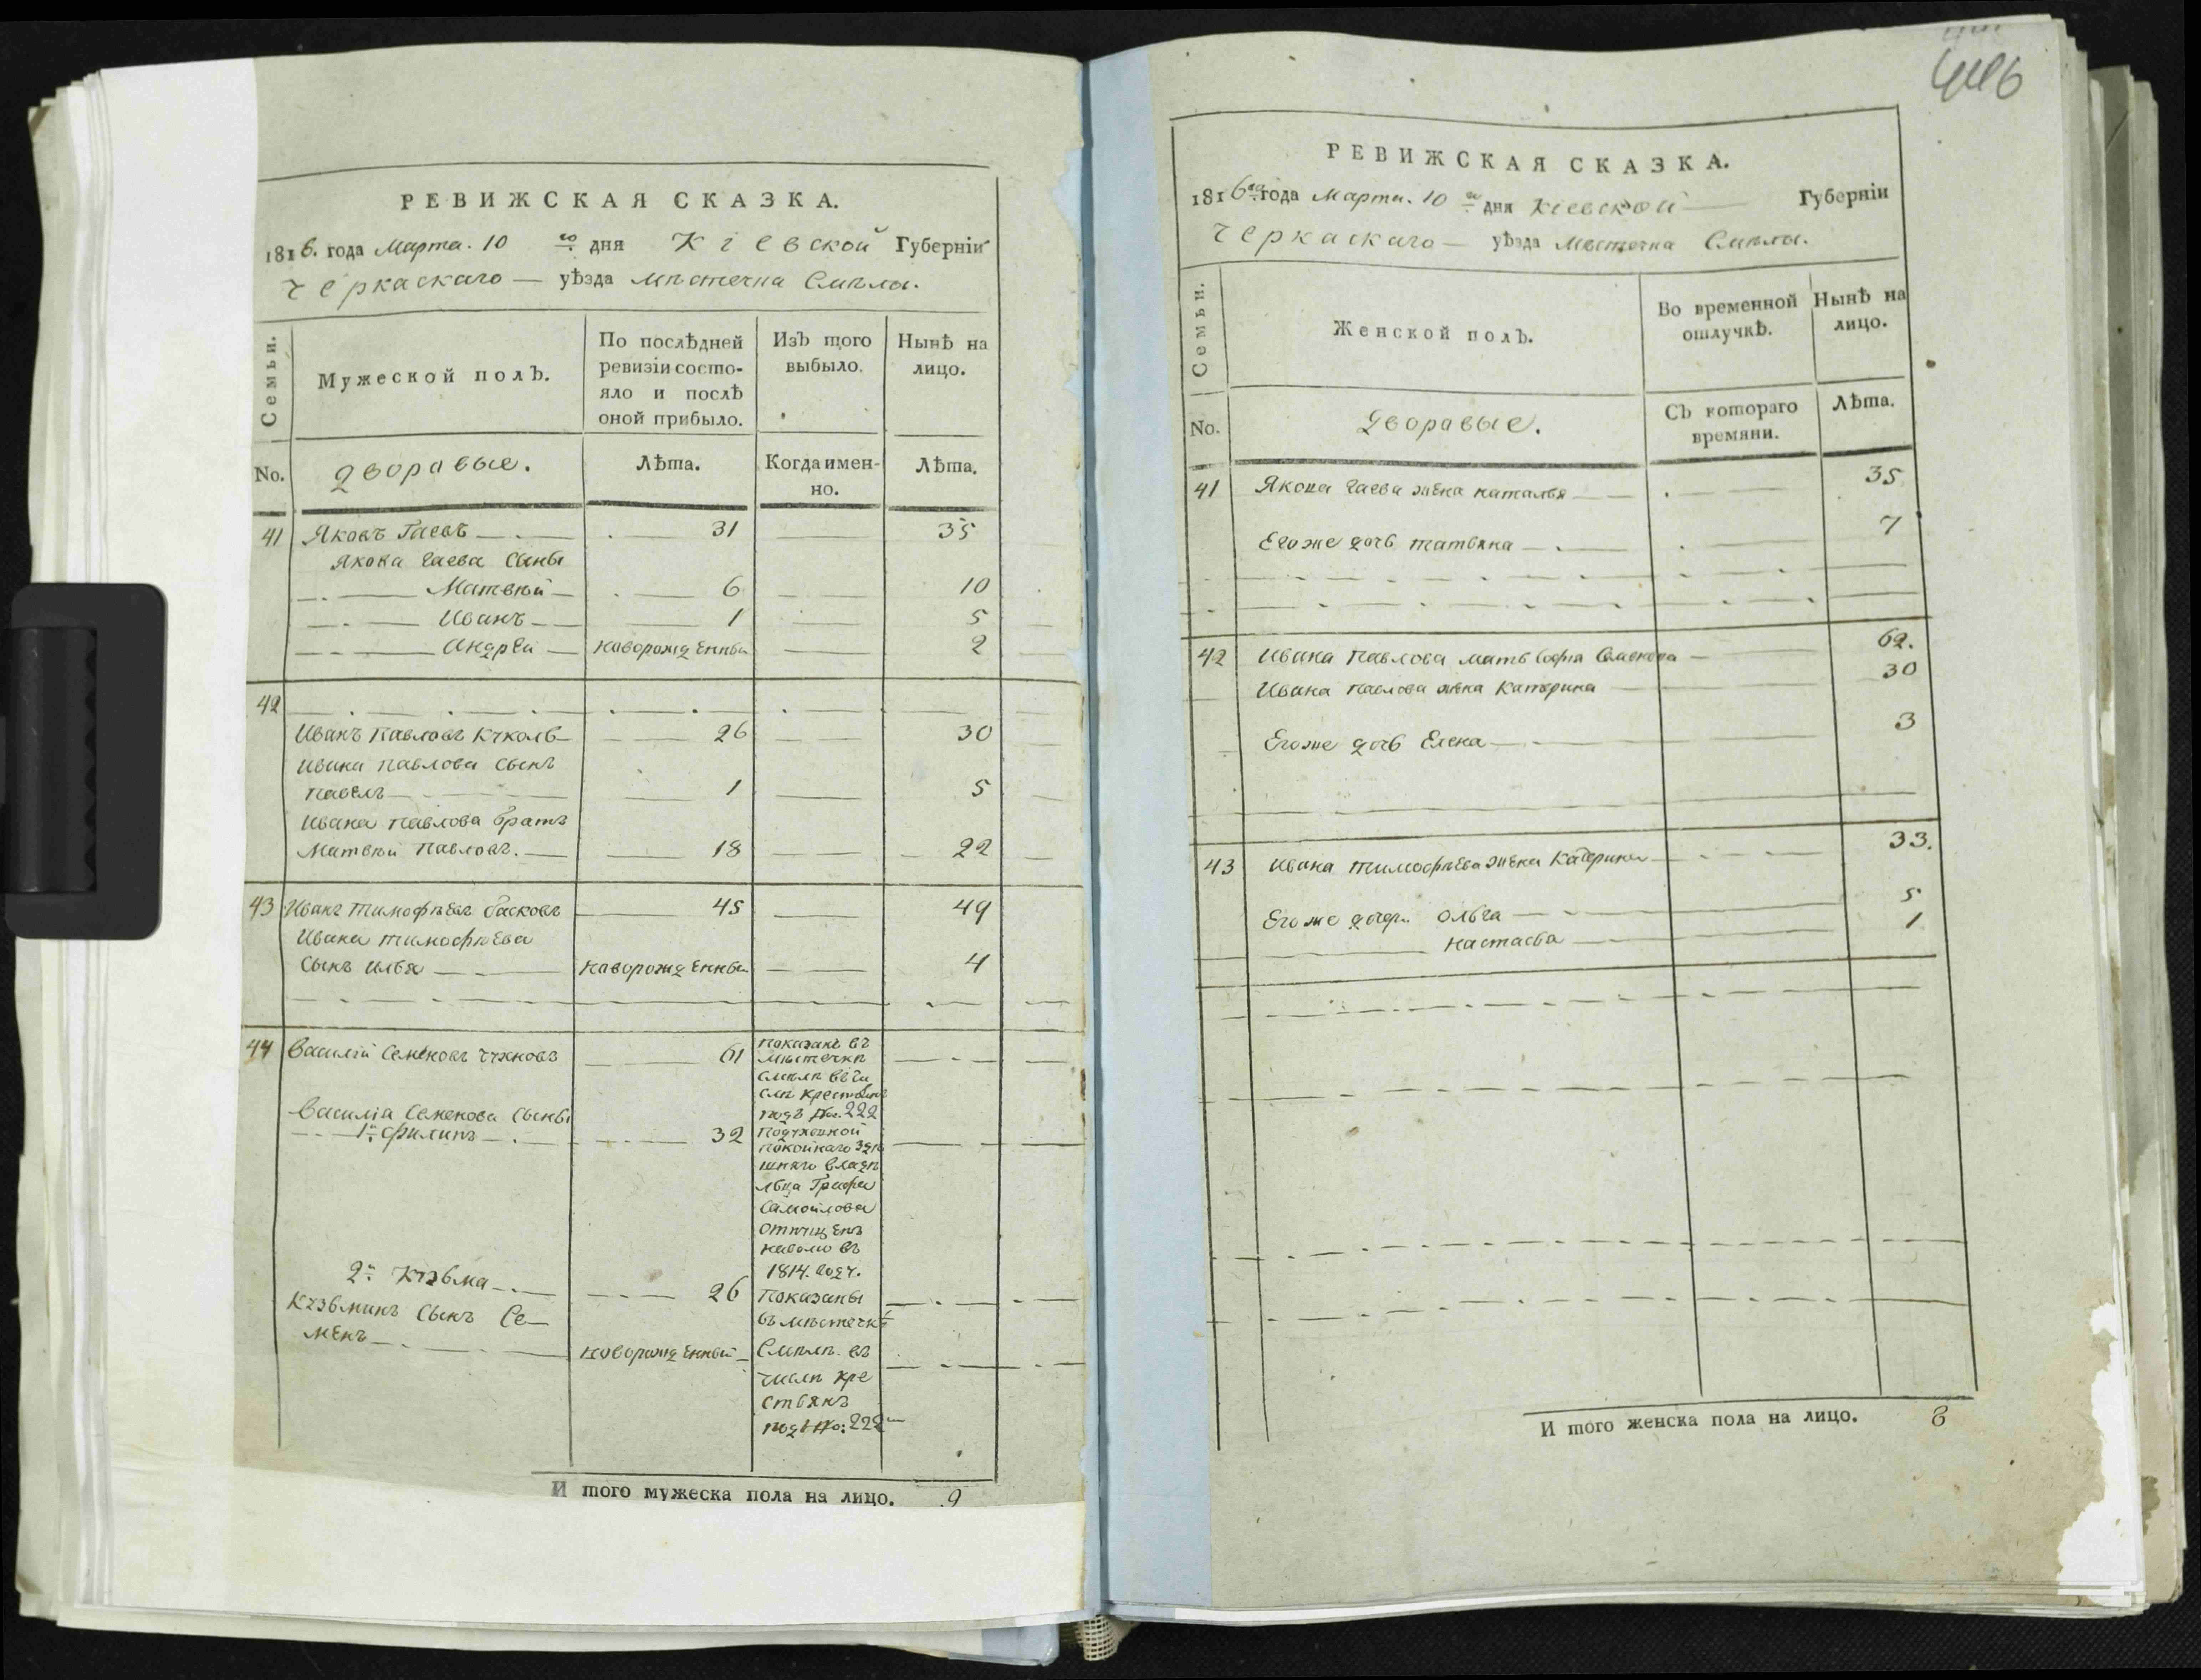 РЕВИЖСКАЯ СКАЗКА.
1816. года Марта. 10 го дня Кіевской Губерніи
Черкаскаго — уѣзда мѣстечка Смѣлы.
Семьи.
Мужеской полъ.
По послѣдней ревизіи состояло и послѣ оной прибыло.
Изъ того выбыло.
Нынѣ на лицо.
No.
Дворавые.
Лѣта.
Когда именно.
Лѣта.
41 Яковъ Гаевъ 31 35
Якова Гаева Сыны
Матвѣй 6 10
Иванъ 1 5
Андрей наворожденны 2
42
Иванъ Павловъ 26 30
Ивана Павлова Сынъ
Павелъ 1 5
Ивана Павлова братъ
Матвѣй Павловъ. 18 22
43 Иванъ Тимофѣевъ 45 49
Ивана Тимофѣева
Сынъ Илья наворожденны 4
44 Василій Семеновъ 61
показанъ въ
мѣстечкѣ
Смѣлѣ въ чи
слѣ крестьянъ
подъ No. 222
Василія Семенова Сыны
1й Филипъ 32
покойнаго здѣ
шняго владѣ
льца Графа
Самойлова
отпущенъ
наволю въ
1814. году.
2й Кузьма 26
Показаны
въ мѣстечкѣ
Кузьминъ Сынъ Се
менъ наворожденный
Смѣлѣ. въ
числѣ кре
стьянъ
подъ No: 222
И того мужеска пола на лицо. 9
446
РЕВИЖСКАЯ СКАЗКА.
1816го года Марта. 10 го дня Кіевской Губерніи
Черкаскаго — уѣзда Мѣстечка Смѣлы.
Семьи.
Женской полъ.
Во временной отлучкѣ.
Нынѣ на лицо.
No.
Дворавые.
Съ котораго времяни.
Лѣта.
41 Якова Гаева жена наталья 35
Егоже дочь татьяна 7
42 Ивана Павлова мать Софія Семенова 62.
Ивана Павлова жена Катерина 30
Егоже дочь Елена 3
43 Ивана Тимофѣева жена Катерина 33.
Егоже дочери ольга 5
настасья 1
И того женска пола на лицо. 8